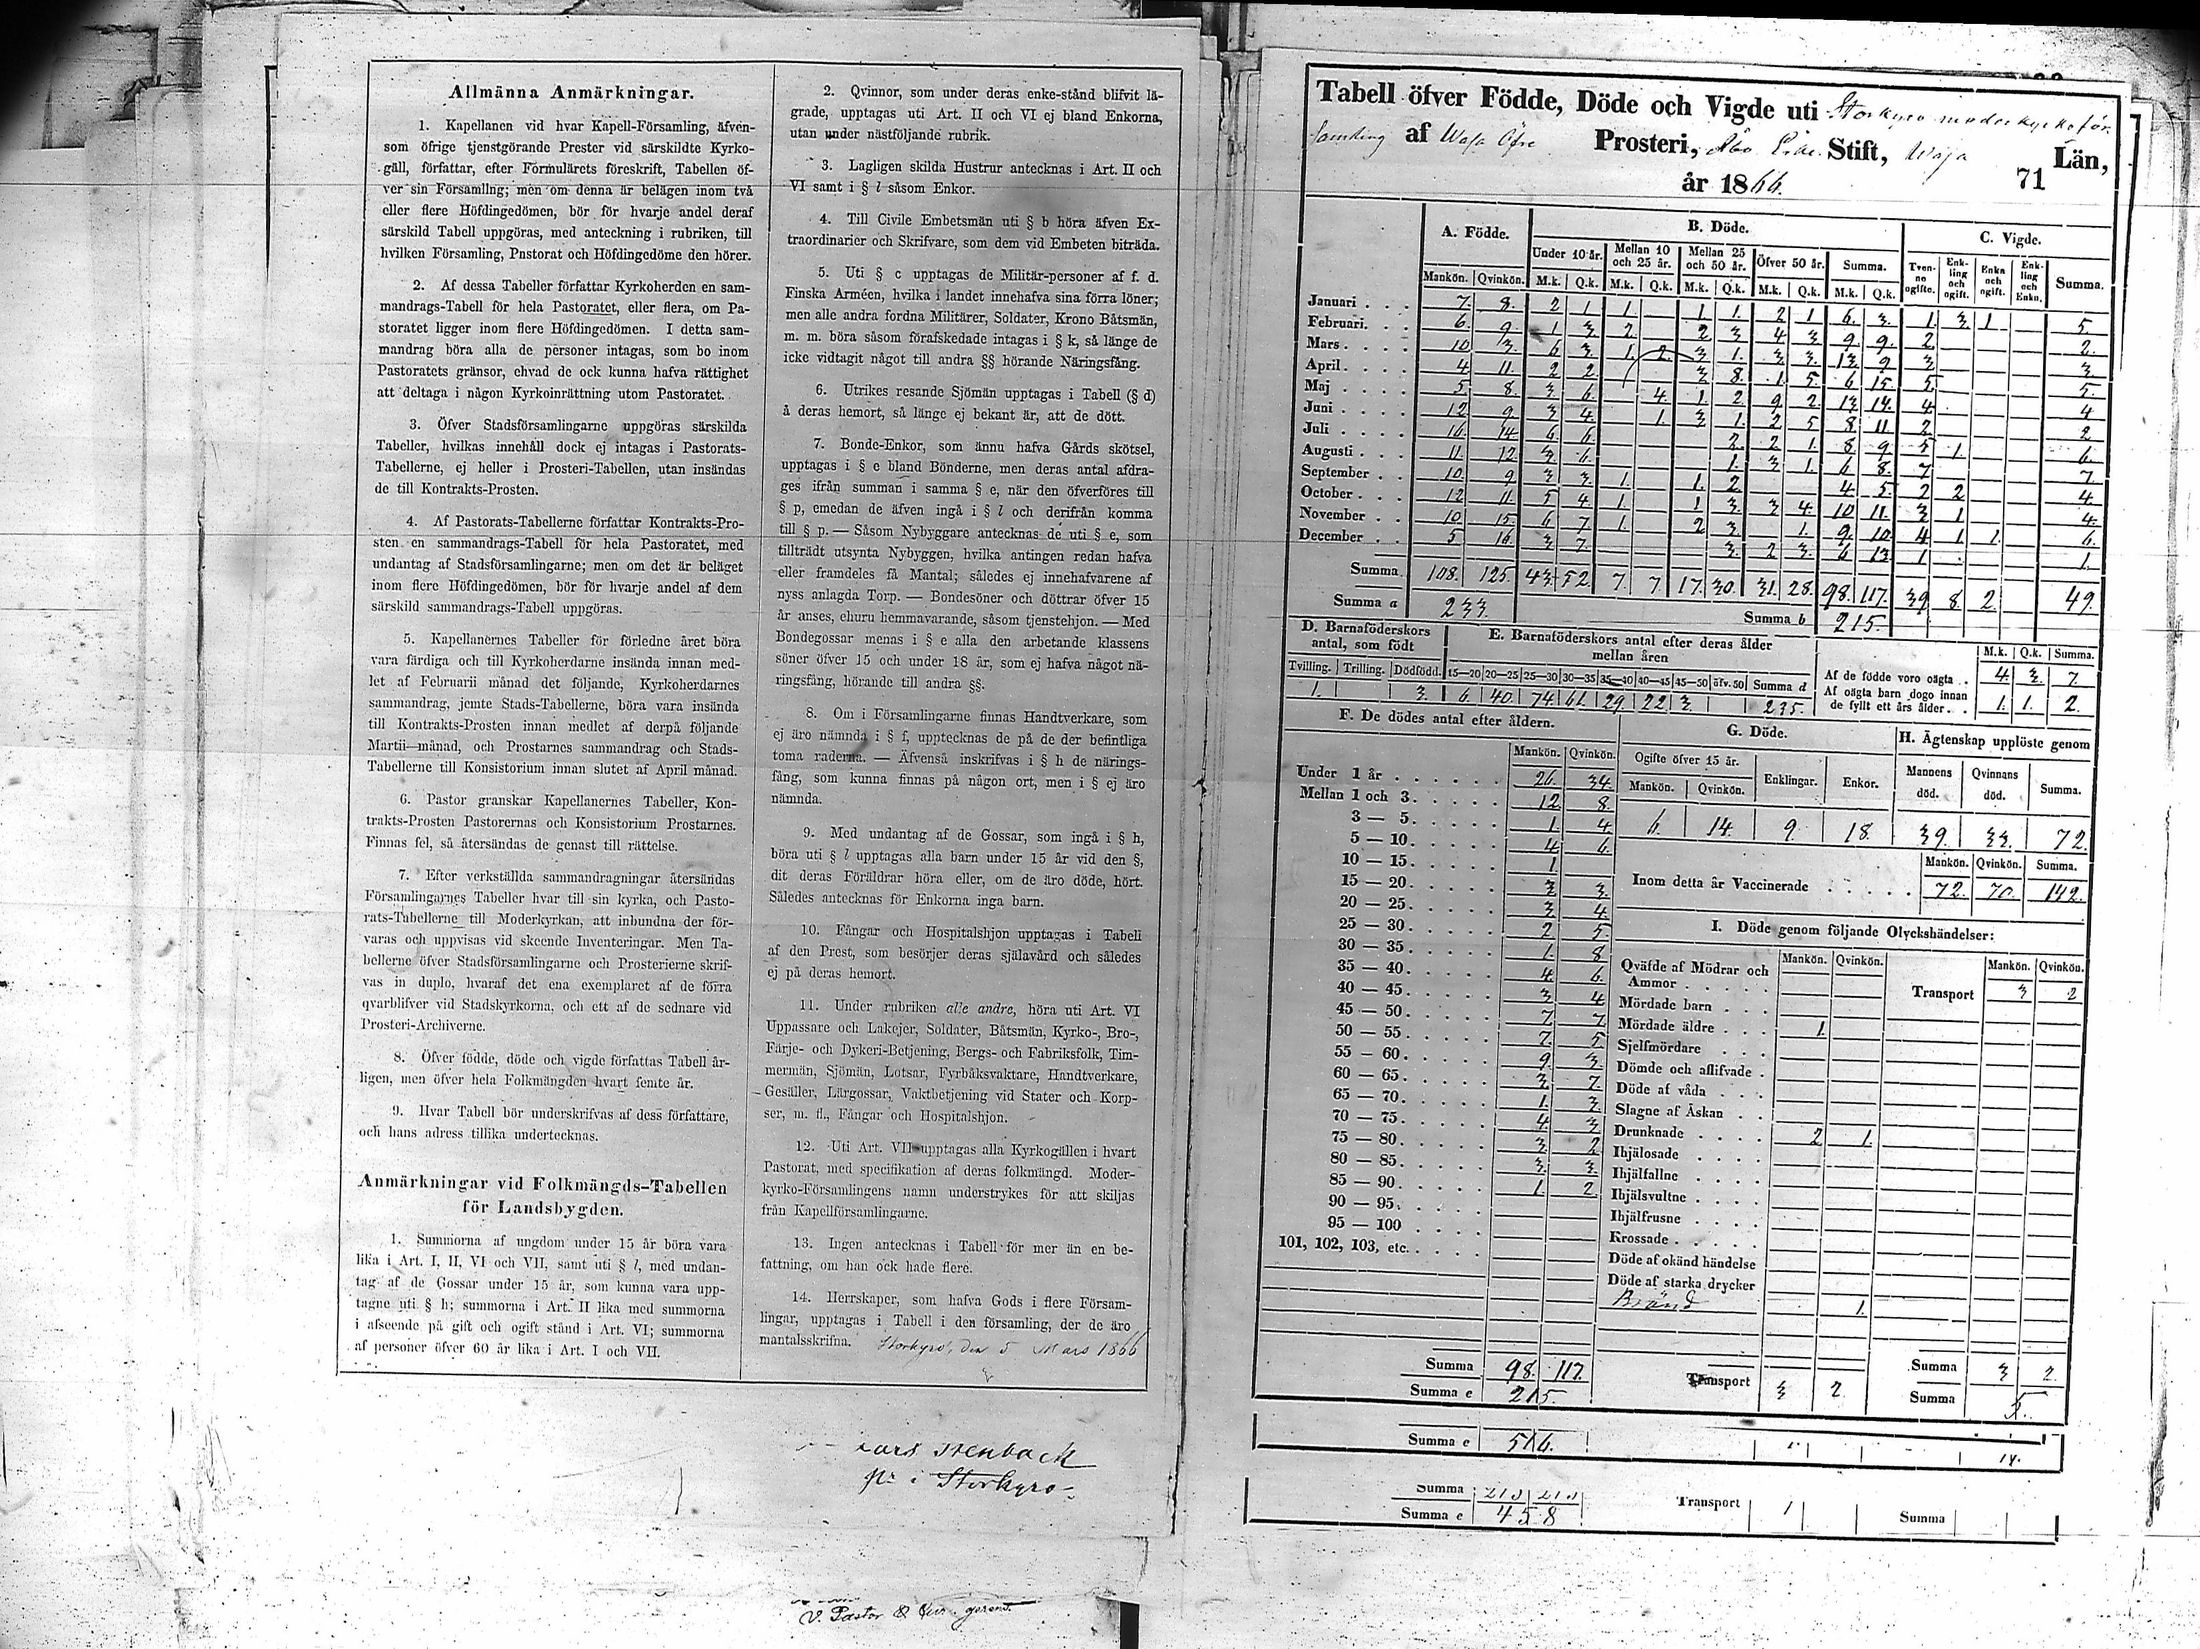 Allmänna Anmärkningar.
1. Kapellanen vid hvar Kapell-Församling, äfven-
som öfrige tjenstgörande Prester vid särskildte Kyrko-
gäll, författar, efter Formulärets föreskrift, Tabellen öf-
ver sin Församling; men om denna är belägen inom två
eller flere Höfdingedömen, bör för hvarje andel deraf
särskild Tabell uppgöras, med anteckning i rubriken, till
hvilken Församling, Pastorat och Höfdingedöme den hörer.
2. Af dessa Tabeller författar Kyrkoherden en sam-
mandrags-Tabell för hela Pastoratet, eller flera, om Pa-
storatet ligger inom flere Höfdingedömen. I detta sam-
mandrag böra alla de personer intagas, som bo inom
Pastoratets gränsor, ehvad de ock kunna hafva rättighet
att deltaga i någon Kyrkoinrättning utom Pastoratet.
3. Öfver Stadsförsamlingarne uppgöras särskilda
Tabeller, hvilkas innehåll dock ej intagas i Pastorats-
Tabellerne, ej heller i Prosteri-Tabellen, utan insändas
de till Kontrakts-Prosten.
4. Af Pastorats-Tabellerne författar Kontrakts-Pro-
sten en sammandrags-Tabell för hela Pastoratet, med
undantag af Stadsförsamlingarne; men om det är beläget
inom flere Höfdingedömen, bör för hvarje andel af dem
särskild sammandrags-Tabell uppgöras.
5. Kapellanernes Tabeller för förledne året böra
vara färdiga och till Kyrkoherdarne insända innan med-
let af Februarii månad det följande, Kyrkoherdarnes
sammandrag, jemte Stads-Tabellerne, böra vara insända
till Kontrakts-Prosten innan medlet af derpå följande
Martii månad, och Prostarnes sammandrag och Stads-
Tabellerne till Konsistorium innan slutet af April månad.
6. Pastor granskar Kapellanernes Tabeller, Kon-
trakts-Prosten Pastorernas och Konsistorium Prostarnes.
Finnas fel, så återsändas de genast till rättelse.
7. Efter verkställda sammandragningar återsändas
Församlingarnes Tabeller hvar till sin kyrka, och Pasto-
rats-Tabellerne till Moderkyrkan, att inbundna der för-
varas och uppvisas vid skeende Inventeringar. Men Ta-
bellerne öfver Stadsförsamlingarne och Prosterierne skrif-
vas in duplo, hvaraf det ena exemplaret af de förra
qvarblifver vid Stadskyrkorna, och ett af de sednare vid
Prosteri-Archiverne.
8. Öfver födde, döde och vigde författas Tabell år-
ligen, men öfver hela Folkmängden hvart femte år.
9. Hvar Tabell bör underskrifvas af dess författare,
och hans adress tillika undertecknas.
Anmärkningar vid Folkmängds-Tabellen
för Landsbygden.
1. Summorna af ungdom under 15 år böra vara
lika i Art. I, II, VI och VII, samt uti § l, med undan-
tag af de Gossar under 15 år, som kunna vara upp-
tagne uti § h; summorna i Art. II lika med summorna
i afseende på gift och ogift stånd i Art. VI; summorna
af personer öfver 60 år lika i Art. I och VII.
2. Qvinnor, som under deras enke-stånd blifvit lä-
grade, upptagas uti Art. II och VI ej bland Enkorna,
utan under nästföljande rubrik.
3. Lagligen skilda Hustrur antecknas i Art. II och
VI samt i § l såsom Enkor.
4. Till Civile Embetsmän uti § b höra äfven Ex-
traordinarier och Skrifvare, som dem vid Embeten biträda.
5. Uti § c upptagas de Militär-personer af f. d.
Finska Arméen, hvilka i landet innehafva sina förra löner;
men alle andra fordna Militärer, Soldater, Krono Båtsmän,
m. m. böra såsom förafskedade intagas i § k, så länge de
icke vidtagit något till andra §§ hörande Näringsfång.
6. Utrikes resande Sjömän upptagas i Tabell (§ d)
å deras hemort, så länge ej bekant är, att de dött.
7. Bonde-Enkor, som ännu hafva Gårds skötsel,
upptagas i § e bland Bönderne, men deras antal afdra-
ges ifrån summan i samma § e, när den öfverföres till
§ p, emedan de äfven ingå i § l och derifrån komma
till § p. — Såsom Nybyggare antecknas de uti § e, som
tillträdt utsynta Nybyggen, hvilka antingen redan hafva
eller framdeles få Mantal; således ej innehafvarene af
nyss anlagda Torp. — Bondesöner och döttrar öfver 15
år anses, ehuru hemmavarande, såsom tjenstehjon. — Med
Bondegossar menas i § e alla den arbetande klassens
söner öfver 15 och under 18 år, som ej hafva något nä-
ringsfång, hörande till andra §§.
8. Om i Församlingarne finnas Handtverkare, som
ej äro nämnda i § f, upptecknas de på de der befintliga
toma raderna. — Äfvenså inskrifvas i § h de närings-
fång, som kunna finnas på någon ort, men i § ej äro
nämnda.
9. Med undantag af de Gossar, som ingå i § h,
böra uti § l upptagas alla barn under 15 år vid den §,
dit deras Föräldrar höra eller, om de äro döde, hört.
Således antecknas för Enkorna inga barn.
10. Fångar och Hospitalshjon upptagas i Tabell
af den Prest, som besörjer deras själavård och således
ej på deras hemort.
11. Under rubriken alle andre, höra uti Art. VI
Uppassare och Lakejer, Soldater, Båtsmän, Kyrko-, Bro-,
Färje- och Dykeri-Betjening, Bergs- och Fabriksfolk, Tim-
mermän, Sjömän, Lotsar, Fyrbåksvaktare, Handtverkare,
Gesäller, Lärgossar, Vaktbetjening vid Stater och Korp-
ser, m. fl., Fångar och Hospitalshjon.
12. Uti Art. VII upptagas alla Kyrkogällen i hvart
Pastorat, med specifikation af deras folkmängd. Moder-
kyrko-Församlingens namn understrykes för att skiljas
från Kapellförsamlingarne.
13. Ingen antecknas i Tabell för mer än en be-
fattning, om han ock hade flere.
14. Herrskaper, som hafva Gods i flere Försam-
lingar, upptagas i Tabell i den församling, der de äro
mantalsskrifna. Storkyro, den 5 Mars 1866
Lars Stenbäck
pr i Storkyro
V. Pastor
Tabell öfver Födde, Döde och Vigde uti Storkyro moderkyrkoför-
samling af Wasa Öfre Prosteri, Åbo Erke Stift, Wasa Län,
år 1866. 71
A. Födde. B. Döde. C. Vigde.
Under 10 år. Mellan 10 och 25 år. Mellan 25 och 50 år. Öfver 50 år. Summa. Tvenne ogifte. Enkling och ogift. Enka och ogift. Enkling och Enka. Summa.
Mankön. Qvinkön. M.k. Q.k. M.k. Q.k. M.k. Q.k. M.k. Q.k. M.k. Q.k.
Januari 7. 8. 2 1 1. 1 1. 2 1 6. 3. 1. 3 1 5
Februari 6. 9. 1 3 2. 2 3 4 3 9 9. 2 2.
Mars 10 3. 6 3. 1. 2 3 1. 3 3. 13 9 3 3
April 4 11. 2 2 3 8. 1 5. 6 15. 5. 5.
Maj 5. 8. 3 6. 4. 1. 2. 9 2. 13 14. 4. 4
Juni 12 9. 3 4. 1. 3 1. 2 5 8 11 2 2
Juli 16. 14. 6 6. 2. 2 1. 8 9. 5 1. 6.
Augusti 11. 12 3 6. 1. 3 1. 6 8. 7 7.
September 10. 9 3 3. 1. 1. 2 4 5. 2 2 4
October 12 11. 5 4. 1. 1 3. 3 4. 10 11. 3 1. 4.
November 10 15. 6 7. 1. 2 3. 1. 9. 10 4 1. 1. 6.
December 5 16. 3 7. 3. 2 3. 6 13 1. 1.
Summa. 108. 125. 43. 52 7. 7 17. 30. 31. 28. 98. 117. 39 8. 2. 49.
Summa a 233. Summa b 215.
D. Barnaföderskors antal, som födt
E. Barnaföderskors antal efter deras ålder mellan åren
M.k. Q.k. Summa.
Tvilling. Trilling. Dödfödd. 15—20 20—25 25—30 30—35 35—40 40—45 45—50 öfv. 50 Summa d
1. 3. 6 40. 74. 61. 29. 22. 3. 235.
Af de födde voro oägta 4. 3. 7.
Af oägta barn dogo innan de fyllt ett års ålder 1. 1. 2.
F. De dödes antal efter åldern.
Mankön. Qvinkön.
Under 1 år 26. 34.
Mellan 1 och 3 12 8.
3 — 5 1. 4
5 — 10 4 6.
10 — 15 1.
15 — 20 3 3.
20 — 25 3. 4.
25 — 30 2 5.
30 — 35 1. 8
35 — 40 4. 6.
40 — 45 3 4
45 — 50 7. 7.
50 — 55 7. 5
55 — 60 9. 3.
60 — 65 3. 7.
65 — 70 1. 3.
70 — 75 4. 3
75 — 80 3. 2
80 — 85 3. 3.
85 — 90 1. 2.
90 — 95
95 — 100
101, 102, 103, etc.
Summa 98. 117.
Summa e 215.
G. Döde.
Ogifte öfver 15 år. Enklingar. Enkor.
Mankön. Qvinkön.
6. 14. 9. 18.
H. Ägtenskap upplöste genom
Mannens död. Qvinnans död. Summa.
39. 33. 72.
Mankön. Qvinkön. Summa.
Inom detta år Vaccinerade 72. 70. 142.
I. Döde genom följande Olyckshändelser:
Mankön. Qvinkön. Mankön. Qvinkön.
Qväfde af Mödrar och Ammor
Transport 3 2
Mördade barn
Mördade äldre 1.
Sjelfmördare
Dömde och aflifvade
Döde af våda
Slagne af Åskan
Drunknade 2 1.
Ihjälosade
Ihjälfallne
Ihjälsvultne
Ihjälfrusne
Krossade
Döde af okänd händelse
Döde af starka drycker
Bränd 1.
Transport 3 2
Summa 3 2.
Summa 5.
Summa e 516. 14.
Summa Transport 1 Summa
Summa e 458